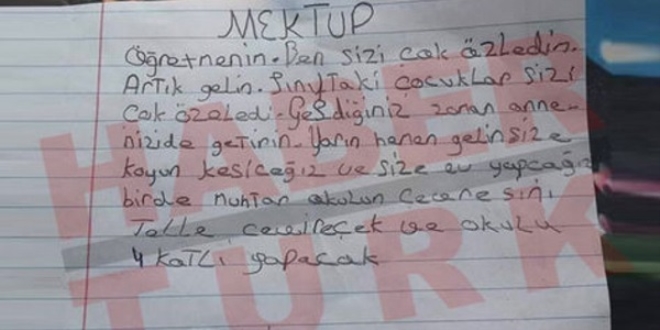 MEKTUP
Öğretmenim. Ben sizi çok özledim.
Artık gelin. Sınıftaki çocuklar sizi
Çok özeledi. Geldiğiniz zaman anne-
nizide getirin. Yarın hemen gelin size
koyun kesiceğiz ve size ev yapcağız
birde muhtar okulun çevresini
Telle çevirecek ve okulu
4 katlı yapacak
HABER
TÜRK